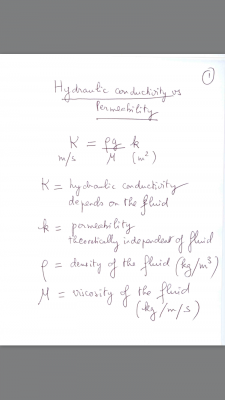 1
Hydraulic conductivity vs
Permeability
K = ρg/μ k
m/s (m²)
K = hydraulic conductivity
depends on the fluid
k = permeability
theoretically independent of fluid
ρ = density of the fluid (kg/m³)
μ = viscosity of the fluid
(kg/m/s)